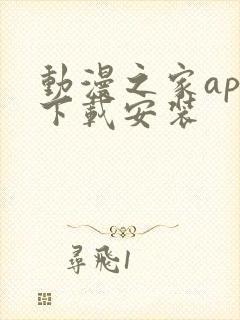 動漫之家ap
下載安裝
尋飛1